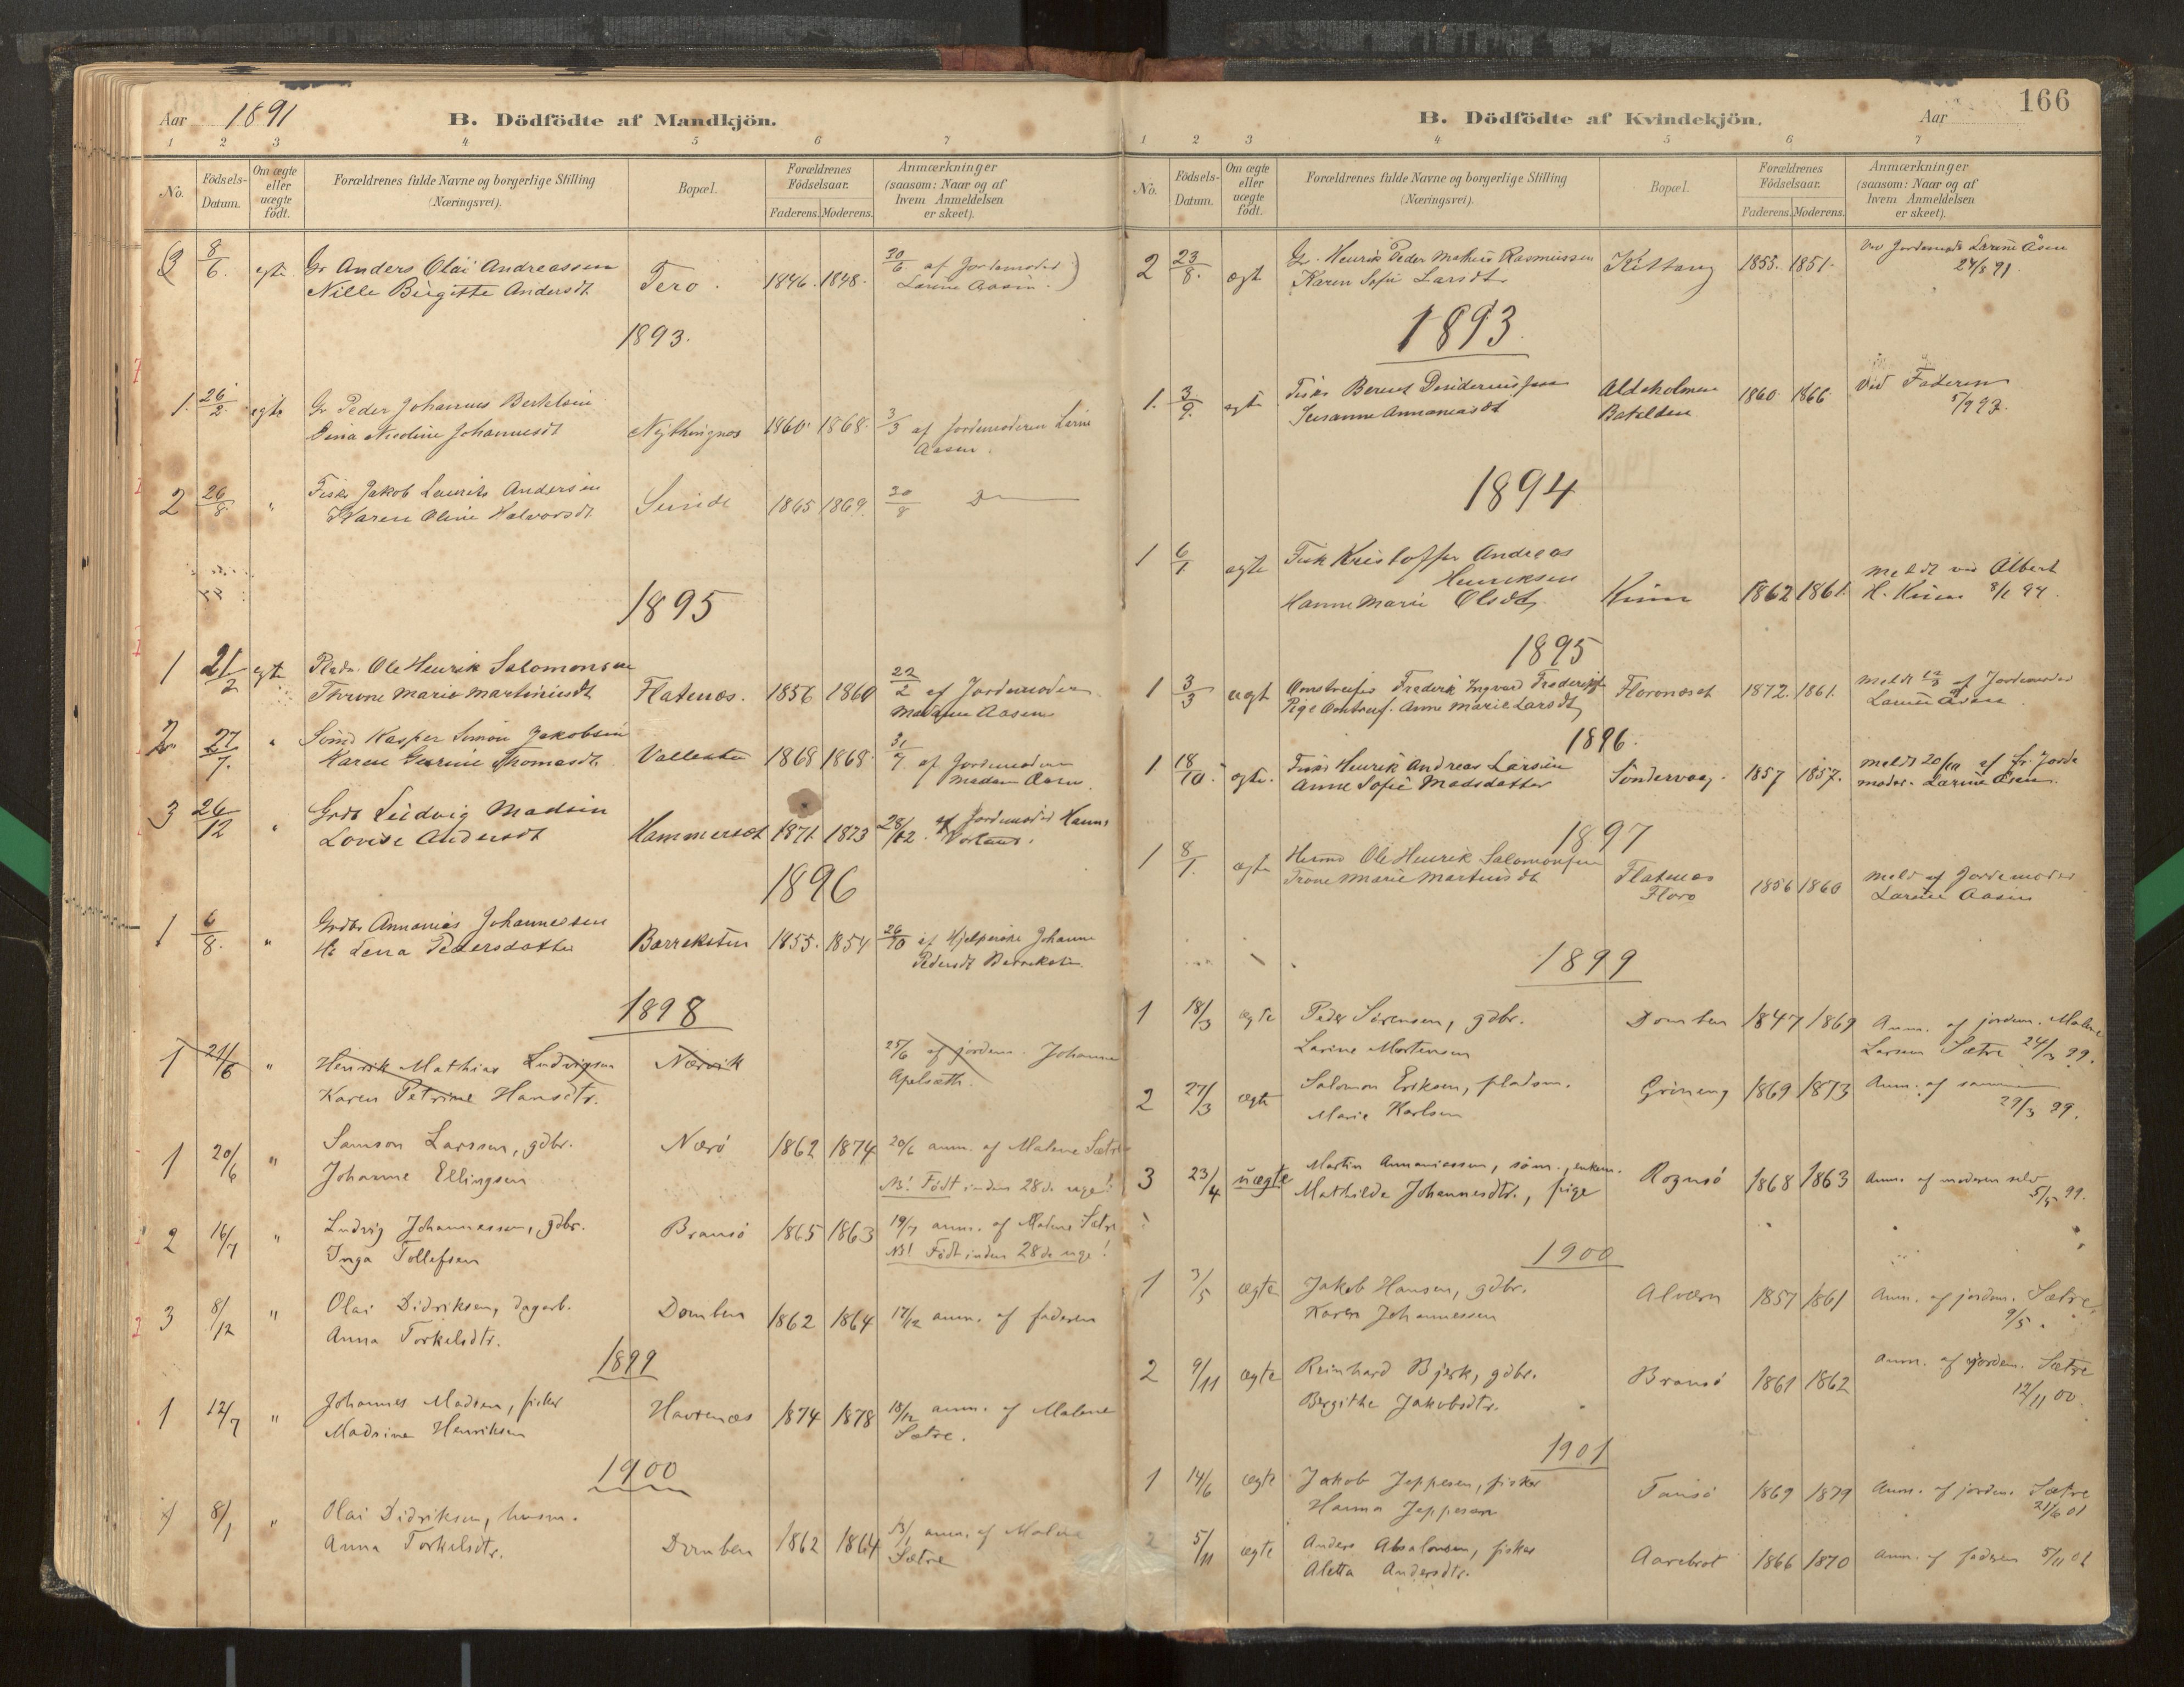 Aar 1891
B. Dödfödte af Mandkjön.
1 2 3 4 5 6 7
No.
Födsels-Datum.
Om ægte eller uægte födt.
Forældrenes fulde Navne og borgerlige Stilling
(Næringsvei).
Bopæl.
Forældrenes Födselsaar.
Faderens. Moderens.
Anmærkninger
(saasom: Naar og af
hvem Anmeldelsen
er skeet).
(3 8/6. egte Gr Anders Olai Andreassen Tero. 1846. 1848. 30/6 af Jordemoder
Nille Birgitte Andersdt Larine Aasen.)
1893.
1. 26/2. egte Gr Peder Johannes Bertelsen
Nicoline Johannesdt 1860. 1868. 3/3 af Jordemoderen Larine
Aasen.
2 26/8 " Fisker Jakob Laurits Andersen Sunde 1865 1869 30/8
Karen Oline Halvorsdt.
1895
1 21/2 egte Pladsm. Ole Henrik Salomonsen
Throne Marie Martinusdt Flatenæs. 1856 1860 22/2 af Jordemoder
Madam Aasen
2. 27/7. " Kasper Simon Jakobsen
Karen Gurine Thomasdt. 1868 1868. 31/7 af Jordemoder
Madam Aasen.
3 26/12 " Grdb Ludvig Madsen
Lovise Andersdt Hammerset 1871. 1873 28/12. af Jordemoder Hanna
1896
1 6/8. " Grdbr Annanias Johannessen
Lena Pedersdatter Barreksten 1855. 1854 26/10 af Hjelperske Johanne
Pedersdt Barreksten
1898
1 21/6 " Henrik Mathias Ludvigsen Nærvik 25/6 af jordem. Johanne
Karen Petrine Hansdtr. Apelsæth.
1 20/6 " Samson Larssen, gdbr. Nærö 1862 1874 20/6 anm. af Malene Sætre
Johanne Ellingsen NB! Födt inden 28de uge!
2 16/7 " Ludvig Johannessen, gdbr. Bransö 1865 1863 19/7 anm. af Malene Sætre
Inga Tollefsen NB! Födt inden 28de uge!
3 8/12 " Olai Didriksen, dagarb. Domben 1862 1864 17/12 anm. af faderen
Anna Torkelsdtr.
1899
1 12/7 " Johannes Madsen, fisker Havrenæs 1874 1878 18/12 anm. af Malene
Madsine Henriksen Sætre.
1900
1 8/1 " Olai Didriksen, husm.
Anna Torkelsdtr. Domben 1862 1864 13/1 anm. af Malene
Sætre
166
B. Dödfödte af Kvindekjön.
Aar
1 2 3 4 5 6 7
No.
Födsels-Datum.
Om ægte eller uægte födt.
Forældrenes fulde Navne og borgerlige Stilling
(Næringsvei).
Bopæl.
Forældrenes Födselsaar.
Faderens. Moderens.
Anmærkninger
(saasom: Naar og af
hvem Anmeldelsen
er skeet).
2 23/8. ægt Gr. Henrik Peder Mathias Rasmussen Kittang 1855. 1851. ved Jordemoder Larine Åsen
Karen Sofie Larsdt 24/8 91
1893.
1. 3/9. egt Fisker Berent Desideriussen Aldeholmen 1860. 1866. ved Faderen
Susanne Annaniasdt Batalden 5/9 93.
1894
1 6/1 egte Fisk Kristoffer Andreas
Henriksen meldt ved Albert
Hanne Marie Olsdt Kinn 1862 1861. H. Kinn 8/1 94.
1895
1 3/3 uegt Frederik Ingvard Frederiksen Floronæset 1872. 1861. meldt 12/3 af Jordemoder
Pige Anne Marie Larsdt Larine Åsen.
1896.
1 18/10. egte. Fisker Henrik Andreas Larsen Söndervaag. 1857 1857. meldt 20/10 af fr. Jorde
Anne Sofie Madsdatter moder. Larine Åsen.
1897
1 8/1. ægte Husmd Ole Henrik Salomonsen Flatenæs 1856 1860 meldt af Jordemoder
Trone Marie Martinusdt Floro Larine Aasen
1899
1 18/3 ægte Peder Sörensen, gdbr. Domben 1847 1869 Anm. af jordem. Malene
Larine Mortensen Larsen Sætre 24/3 99.
2 27/3 ægte Salomon Eriksen, pladsm. Gröneng 1869 1873 Anm. af samme
Marie Karlsen 29/3 99.
3 23/4 uægte Martin Annaniassen, söm., enkem. Rognsö 1868 1863 Anm. af moderen selv
Mathilde Johannesdtr., pige 5/5 99.
1900
1 3/5 ægte Jakob Hansen, gdbr. Alværn 1857 1861 Anm. af jordem. Sætre,
Karen Johannessen 9/5.
2 9/11 ægte Reinhard Bjerk, gdbr. Bransö 1861 1862 Anm. af jordem. Sætre
Bergithe Jakobsdtr. 12/11 00.
1901
1 14/6 ægte Jakob Jeppesen, fisker Fansö 1869 1879 Anm. af jordm. Sætre
Hanna Jeppesen 21/6 01
2 5/11 ægte Anders Absalonsen, fisker Aarebrot 1866 1870 Anm. af faderen 5/11 01
Aletta Andersdtr.